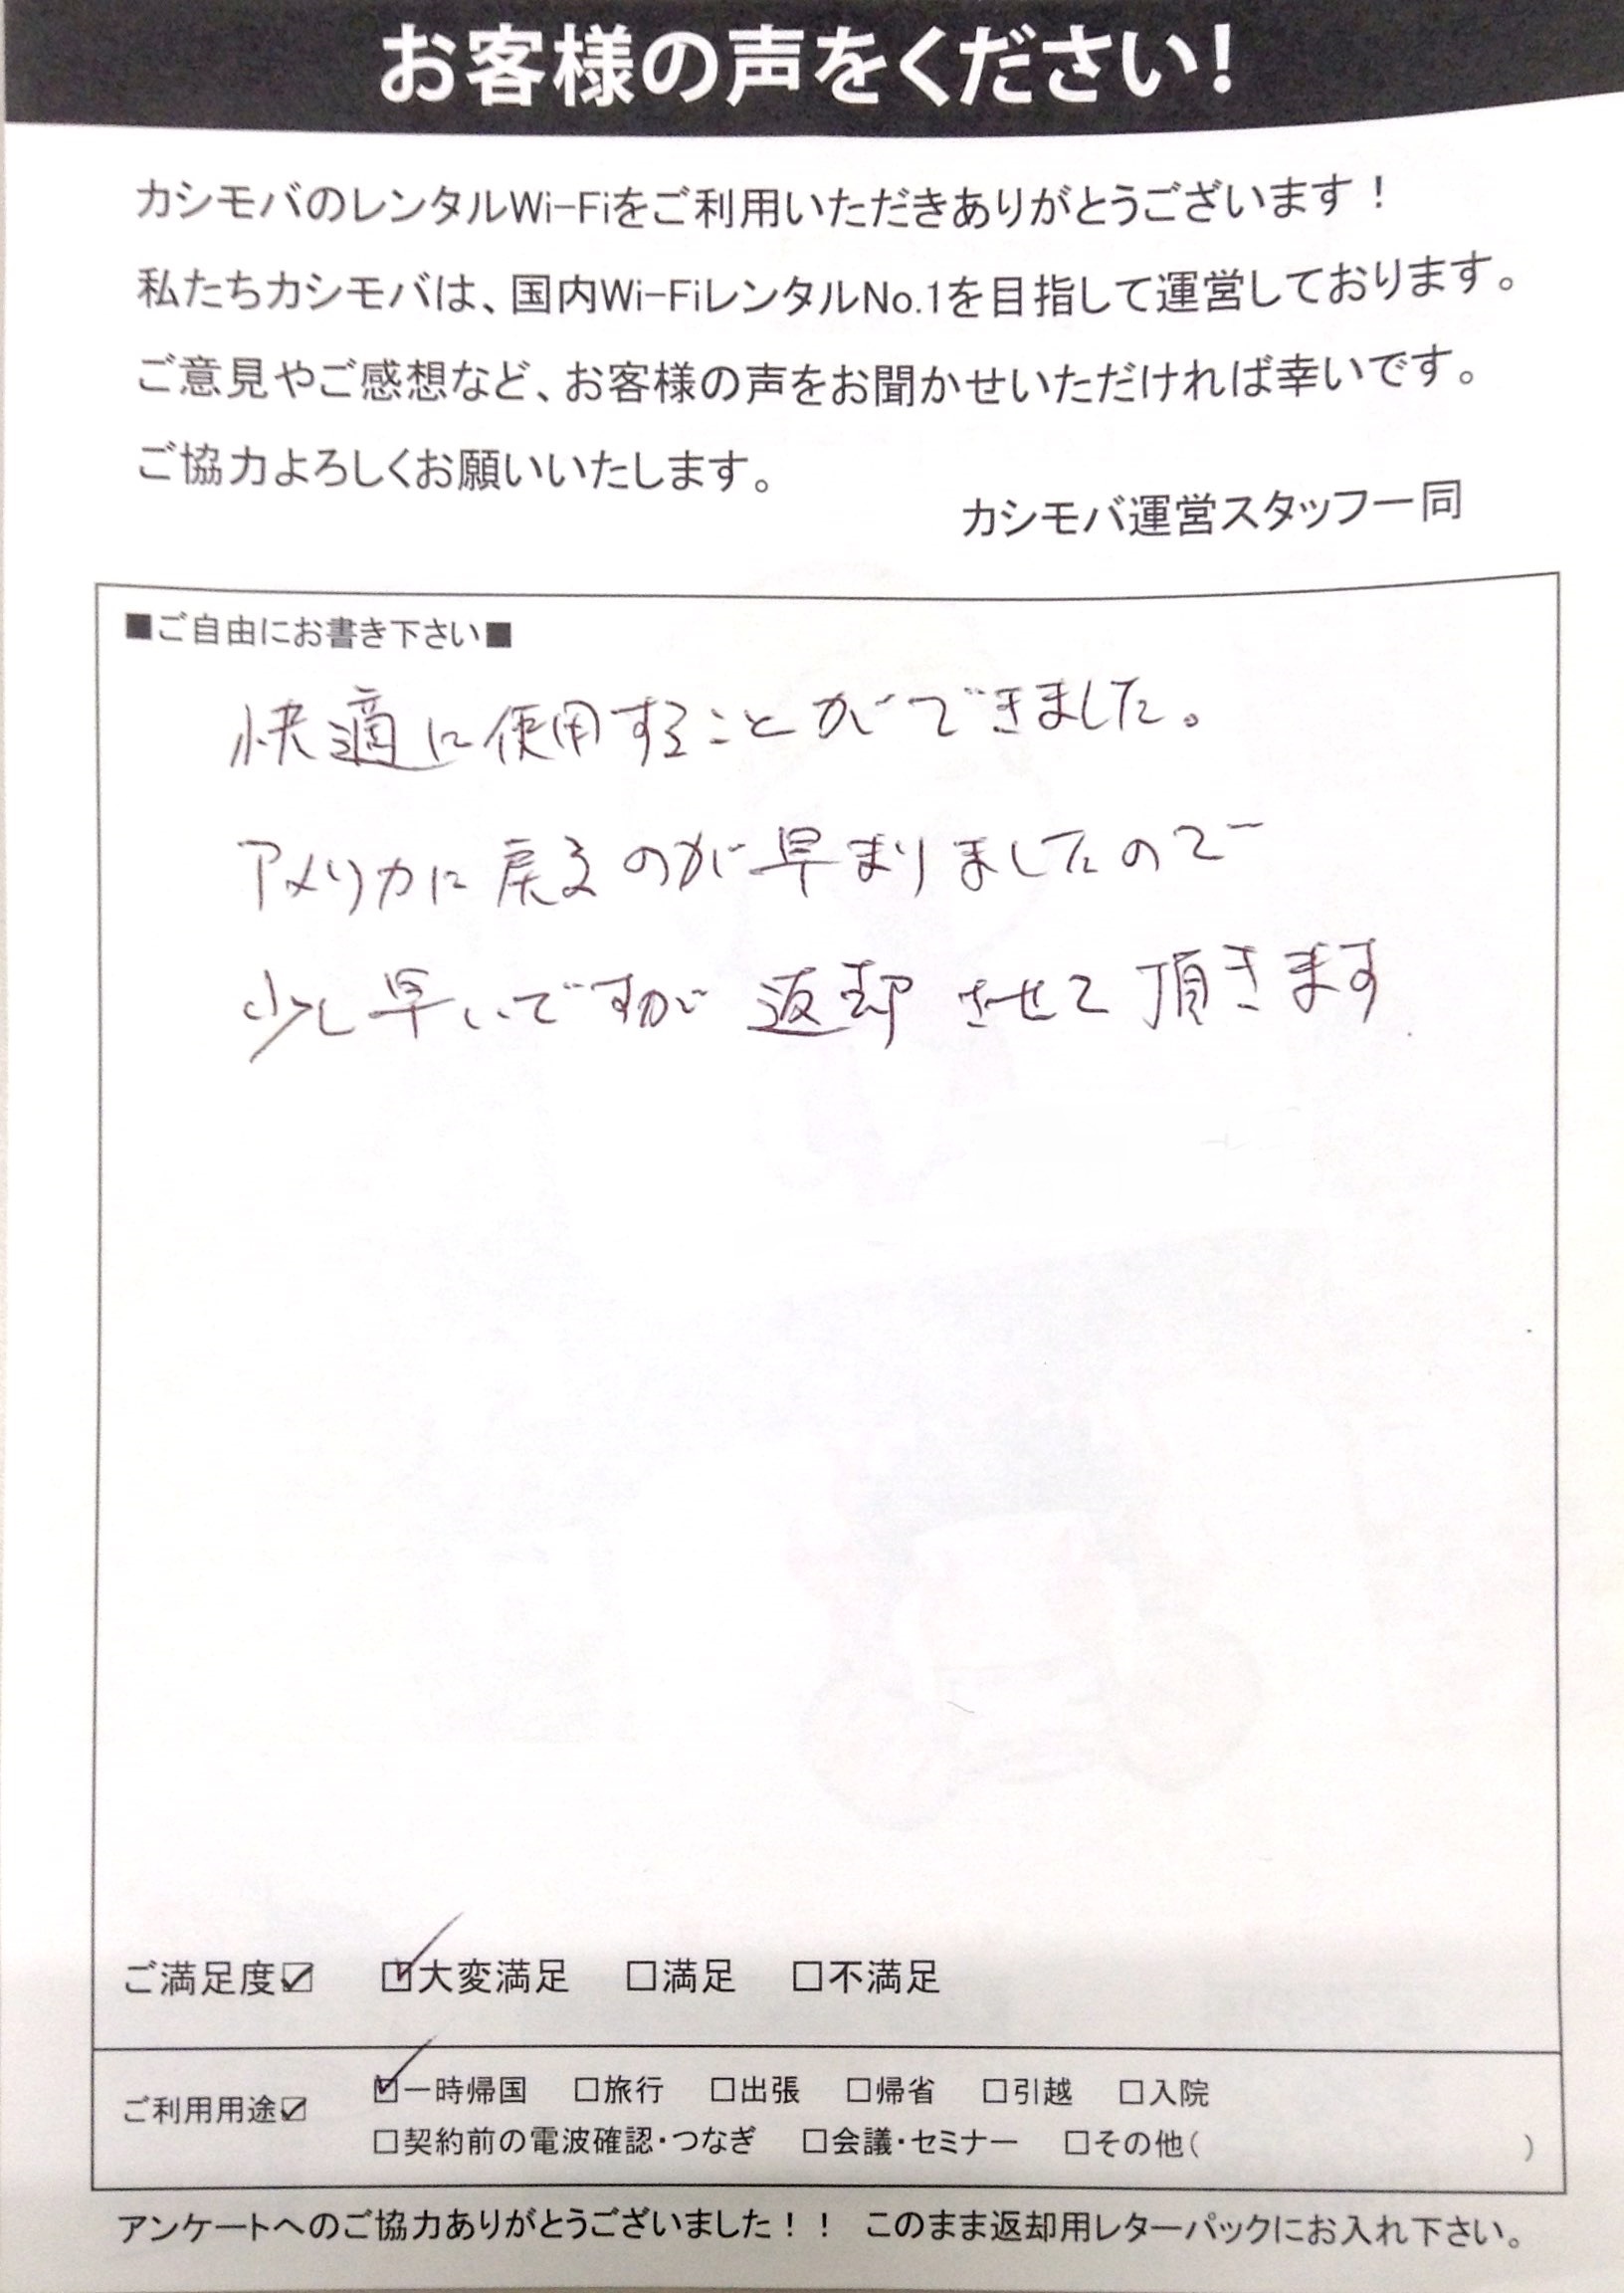 お客様の声をください!
カシモバのレンタルWi-Fiをご利用いただきありがとうございます！
私たちカシモバは、国内Wi-FiレンタルNo.1を目指して運営しております。
ご意見やご感想など、お客様の声をお聞かせいただければ幸いです。
ご協力よろしくお願いいたします。
カシモバ運営スタッフ一同
■ご自由にお書き下さい■
快適に使用することができました。
アメリカに戻るのが早まりましたので
少し早いですが返却させて頂きます
ご満足度☑ ☑大変満足 □満足 □不満足
ご利用用途☑ ☑一時帰国 □旅行 □出張 □帰省 □引越 □入院
□契約前の電波確認・つなぎ □会議・セミナー □その他( )
アンケートへのご協力ありがとうございました！！ このまま返却用レターパックにお入れ下さい。